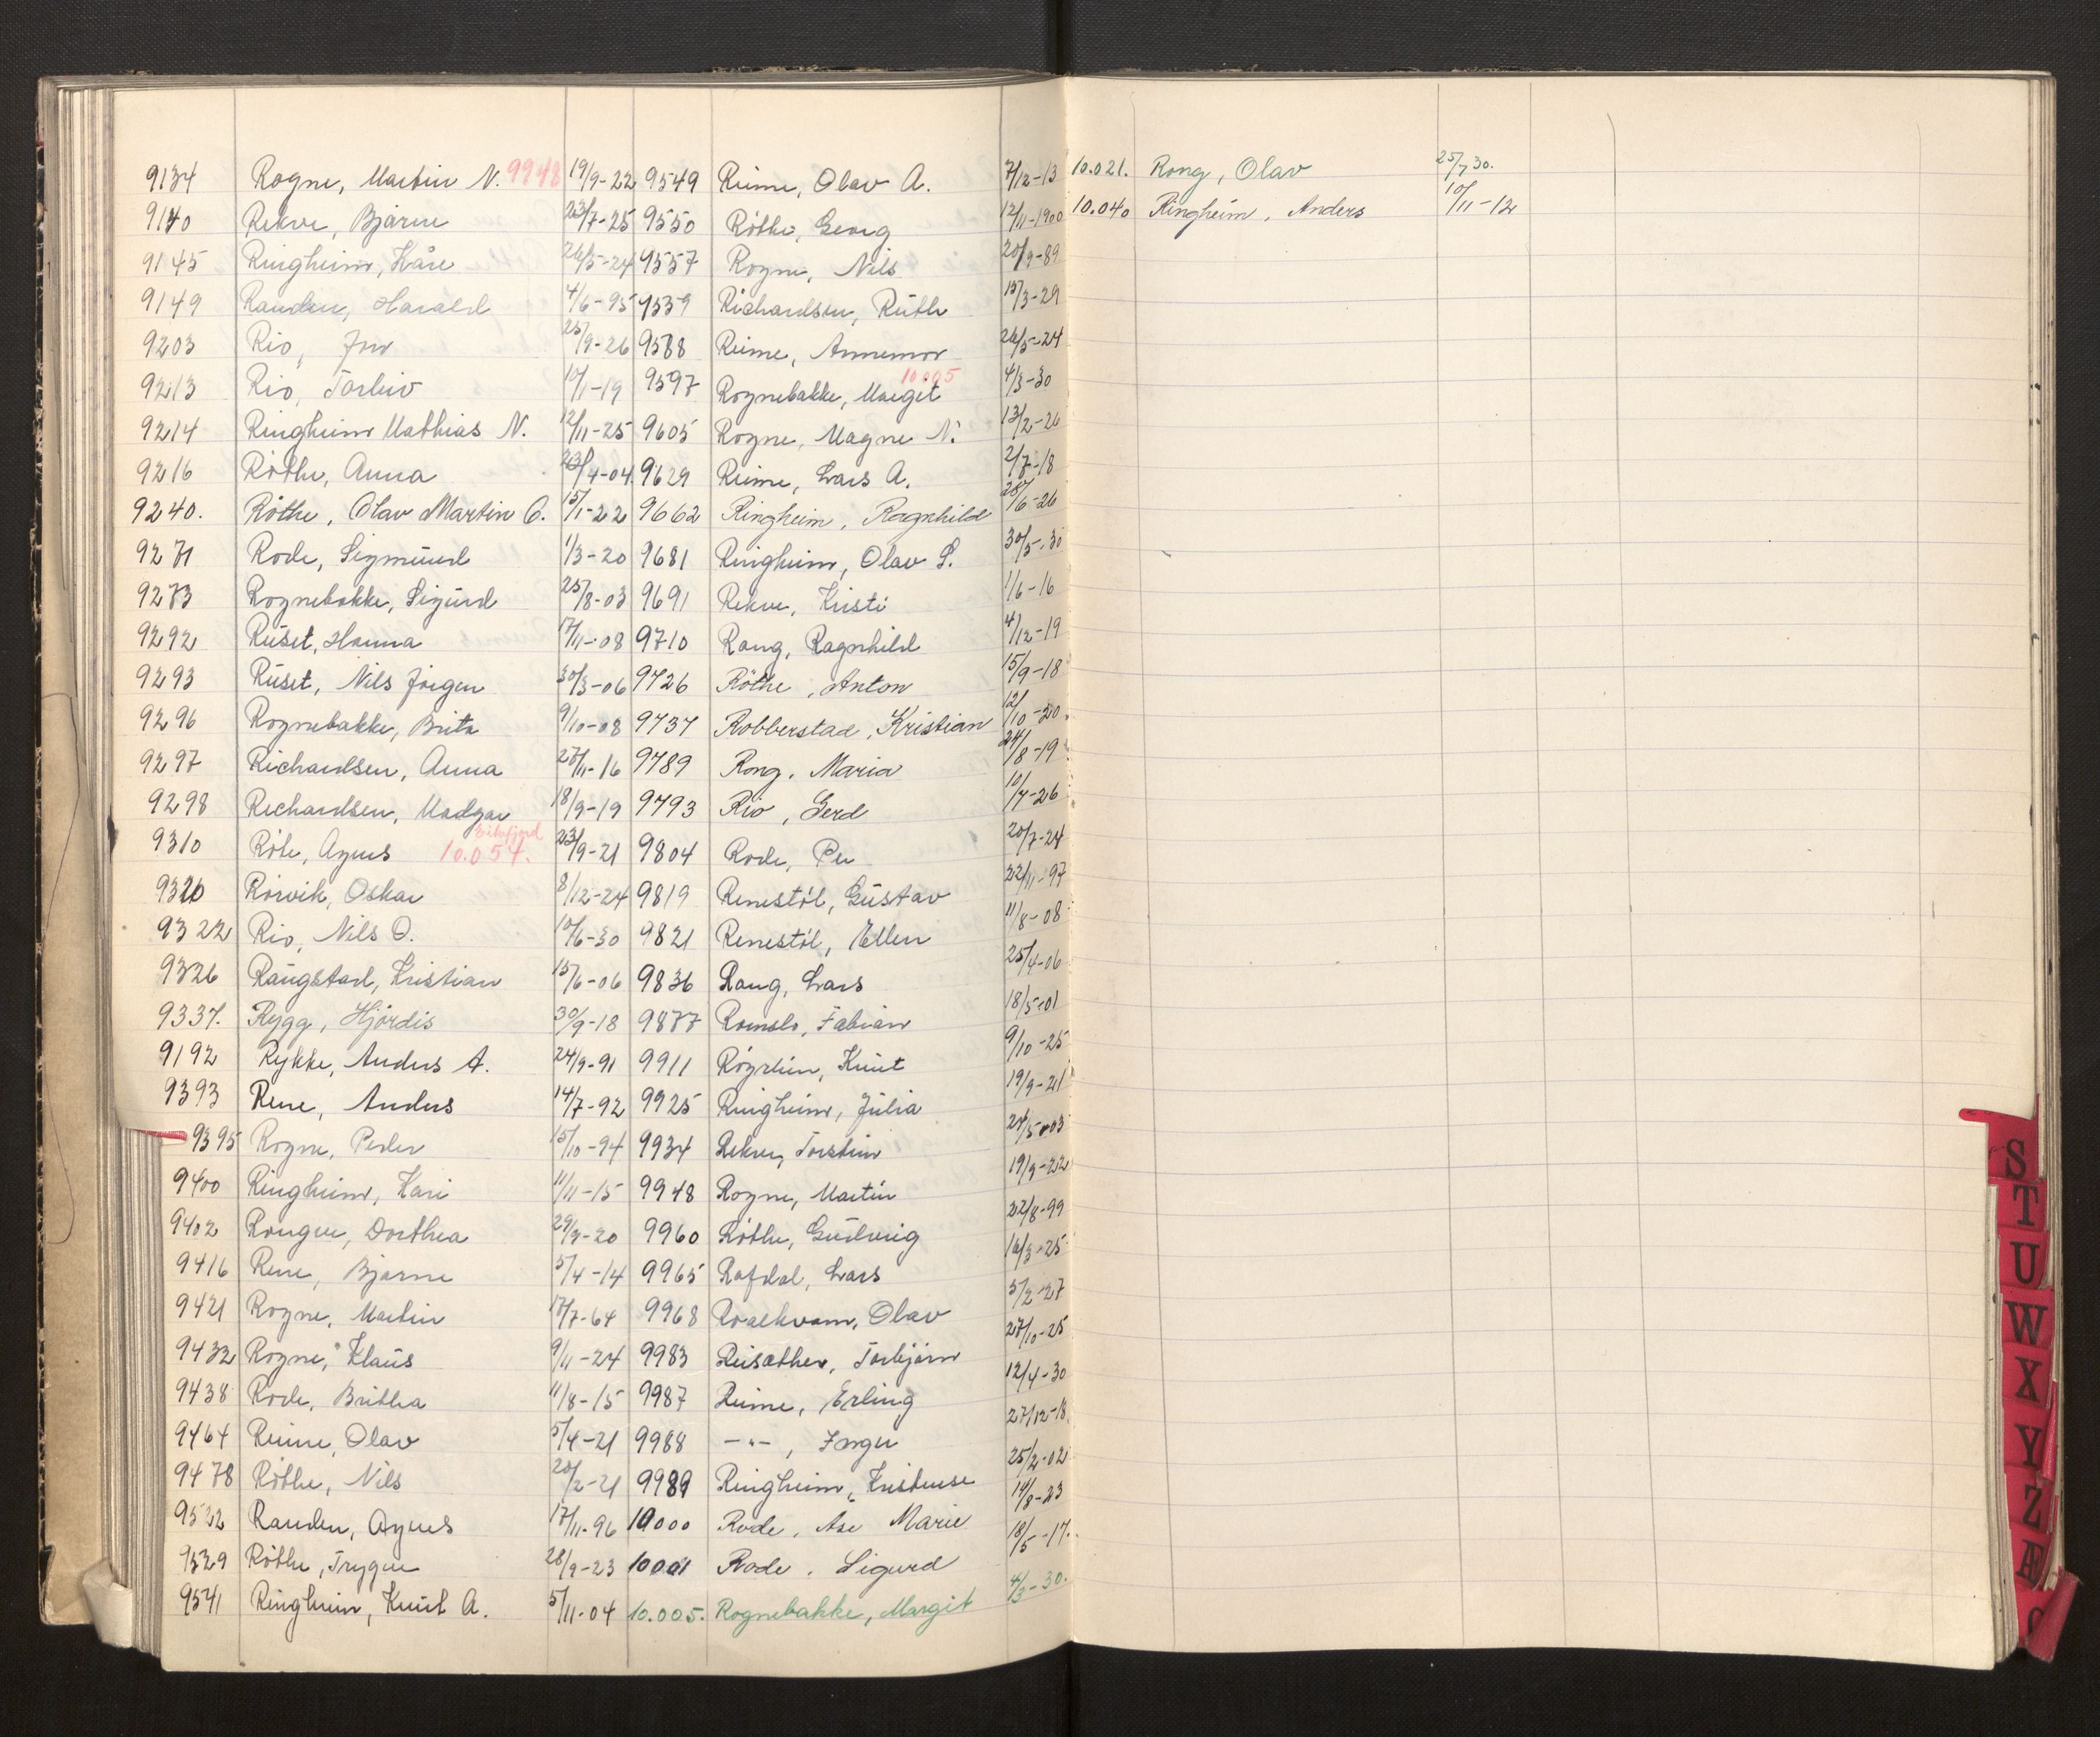 9134 Rogne, Martin N. 9948 19/9-22 9549 Reime, Olav A. 7/12-13 10.021. Rong, Olav 25/7 30.
9140 Rekve, Bjarne 23/7-25 9550 Röthe, Georg 12/11-1900 10.040 Ringheim, Anders 10/11-12
9145 Ringheim, Kåre 26/5-24 9557 Rogne, Nils 20/9-89
9149 Randen, Harald 4/6-95 9559 Richardsen, Ruth 15/3-29
9203 Rio, Jon 25/9-26 9588 Reime, Annemor 26/5-24
9213 Rio, Torleiv 10/1-19 9597 Rognebakke, Marget 10005 4/3-30
9214 Ringheim Mathias N. 12/11-25 9605 Rogne, Magne N. 13/2-26
9216 Röthe, Anna 23/4-04 9629 Reime, Lars A. 2/7-18
9240. Röthe, Olav Martin O. 15/1-22 9662 Ringheim, Ragnhild 28/6-26
9271 Rode, Sigmund 1/3-20 9681 Ringheim, Olav S. 30/5-30
9273 Rognebakke, Sigurd 25/8-03 9691 Rekve, Kristi 1/6-16
9292 Ruset, Hanna 17/11-08 9710 Rong, Ragnhild 4/12-19
9293 Ruset, Nils Jörgen 30/3-06 9726 Röthe, Anton 15/9-18
9296 Rognebakke, Brita 9/10-08 9737 Robberstad, Kristian 12/10-20.
9297 Richardsen, Anna 27/11-16 9789 Rong. Maria 24/8-19
9298 Richardsen, Madgar 18/9-19 9793 Rio, Gerd 10/7-26
9310 Röte, Agnes 10.054. 23/9-21 9804 Rode, Per 20/7-24
9320 Rörvik, Oskar 8/12-24 9819 Renestöl, Gustav 22/11-97
9322 Rio, Nils O. 10/6-30 9821 Renestöl, Ellen 11/8-08
9326 Raugstad, Kristian 15/6-06 9836 Rong, Lars 25/4-06
9337. Rygg, Hjördis 30/9-18 9877 Romslo, Fabian 18/5-01
9192 Rykke, Anders A. 24/9-91 9911 Rögrlien, Knut 9/10-25
9393 Rene, Anders 14/7-92 9925 Ringheim, Julia 19/9-21
9395 Rogne, Peder 15/10-94 9934 Rekve, Torstein 24/5-03
9400 Ringheim, Kari 11/11-15 9948 Rogne, Martin 19/9-22
9402 Rongve, Dorthea 29/9-20 9960 Röthe, Gudveig 22/8-99
9416 Rene, Bjarne 5/4-14 9965 Rafdal, Lars 16/3-25
9421 Rogne, Martin 17/7-64 9968 Roaekvam, Olav 5/2-27
9432 Rogne, Klaus 9/11-24 9983 Reisæther, Torbjörn 27/10-25
9438 Rode, Brithea 11/8-15 9987 Reime, Erling 12/4-30
9464 Reime, Olav 5/4-21 9988 -"-, Inger 27/12-18
9478 Röthe, Nils 20/2-21 9989 Ringheim, Kristense 25/2-02
9522 Randen, Agnes 17/11-96 10000 Rode, Åse Marie 14/8-23
9529 Röthe, Trygve 28/9-23 10001 Rode. Sigurd 18/5-17.
9541 Ringheim, Knut A. 5/11-04 10.005. Rognebakke, Margit 4/3-30.
S
T
U
W
X
Y
Z
Æ